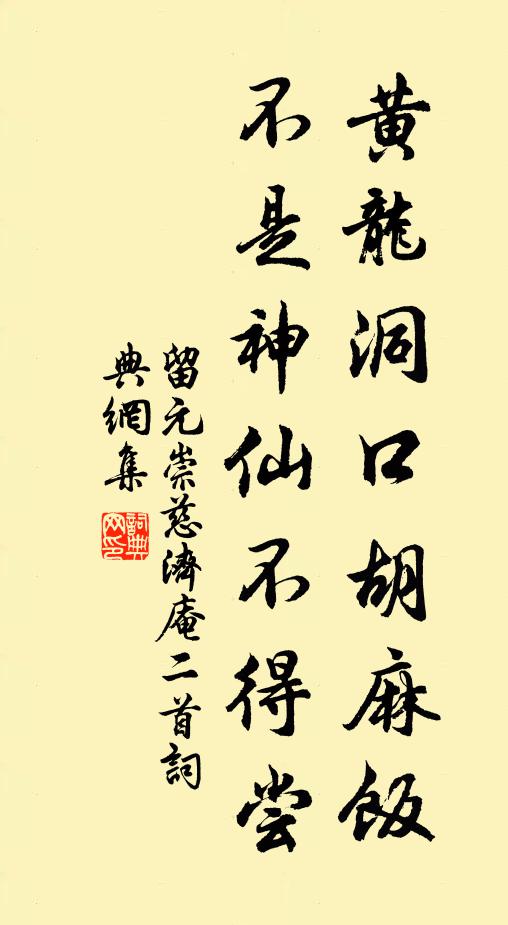 黄龍洞口胡麻飯
不是神仙不得尝
留元崇慈濟庵二首詞
典網集
詞典網印